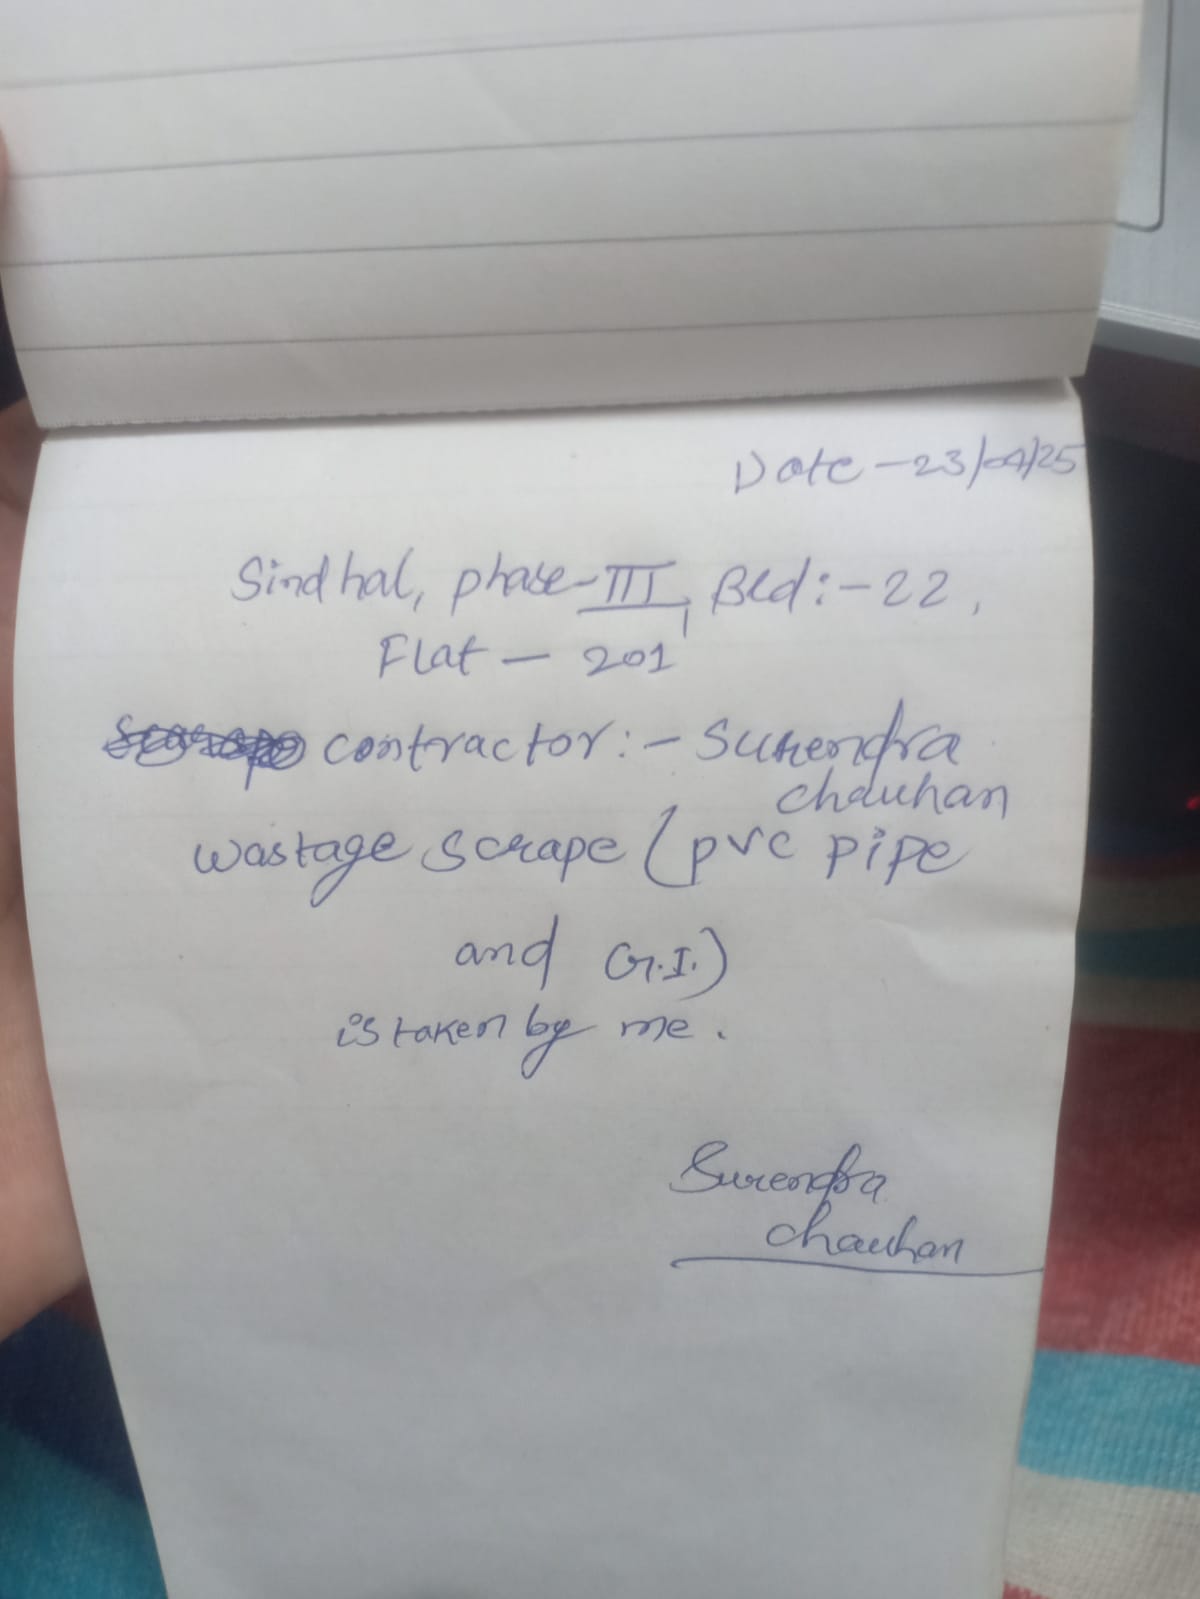 Date - 23/04/25
Sindhal, phase-III, Bld:- 22,
Flat - 201
contractor:- Surendra
chauhan
wastage scrape (pvc pipe
and G.I.)
is taken by me.
Surendra
chauhan